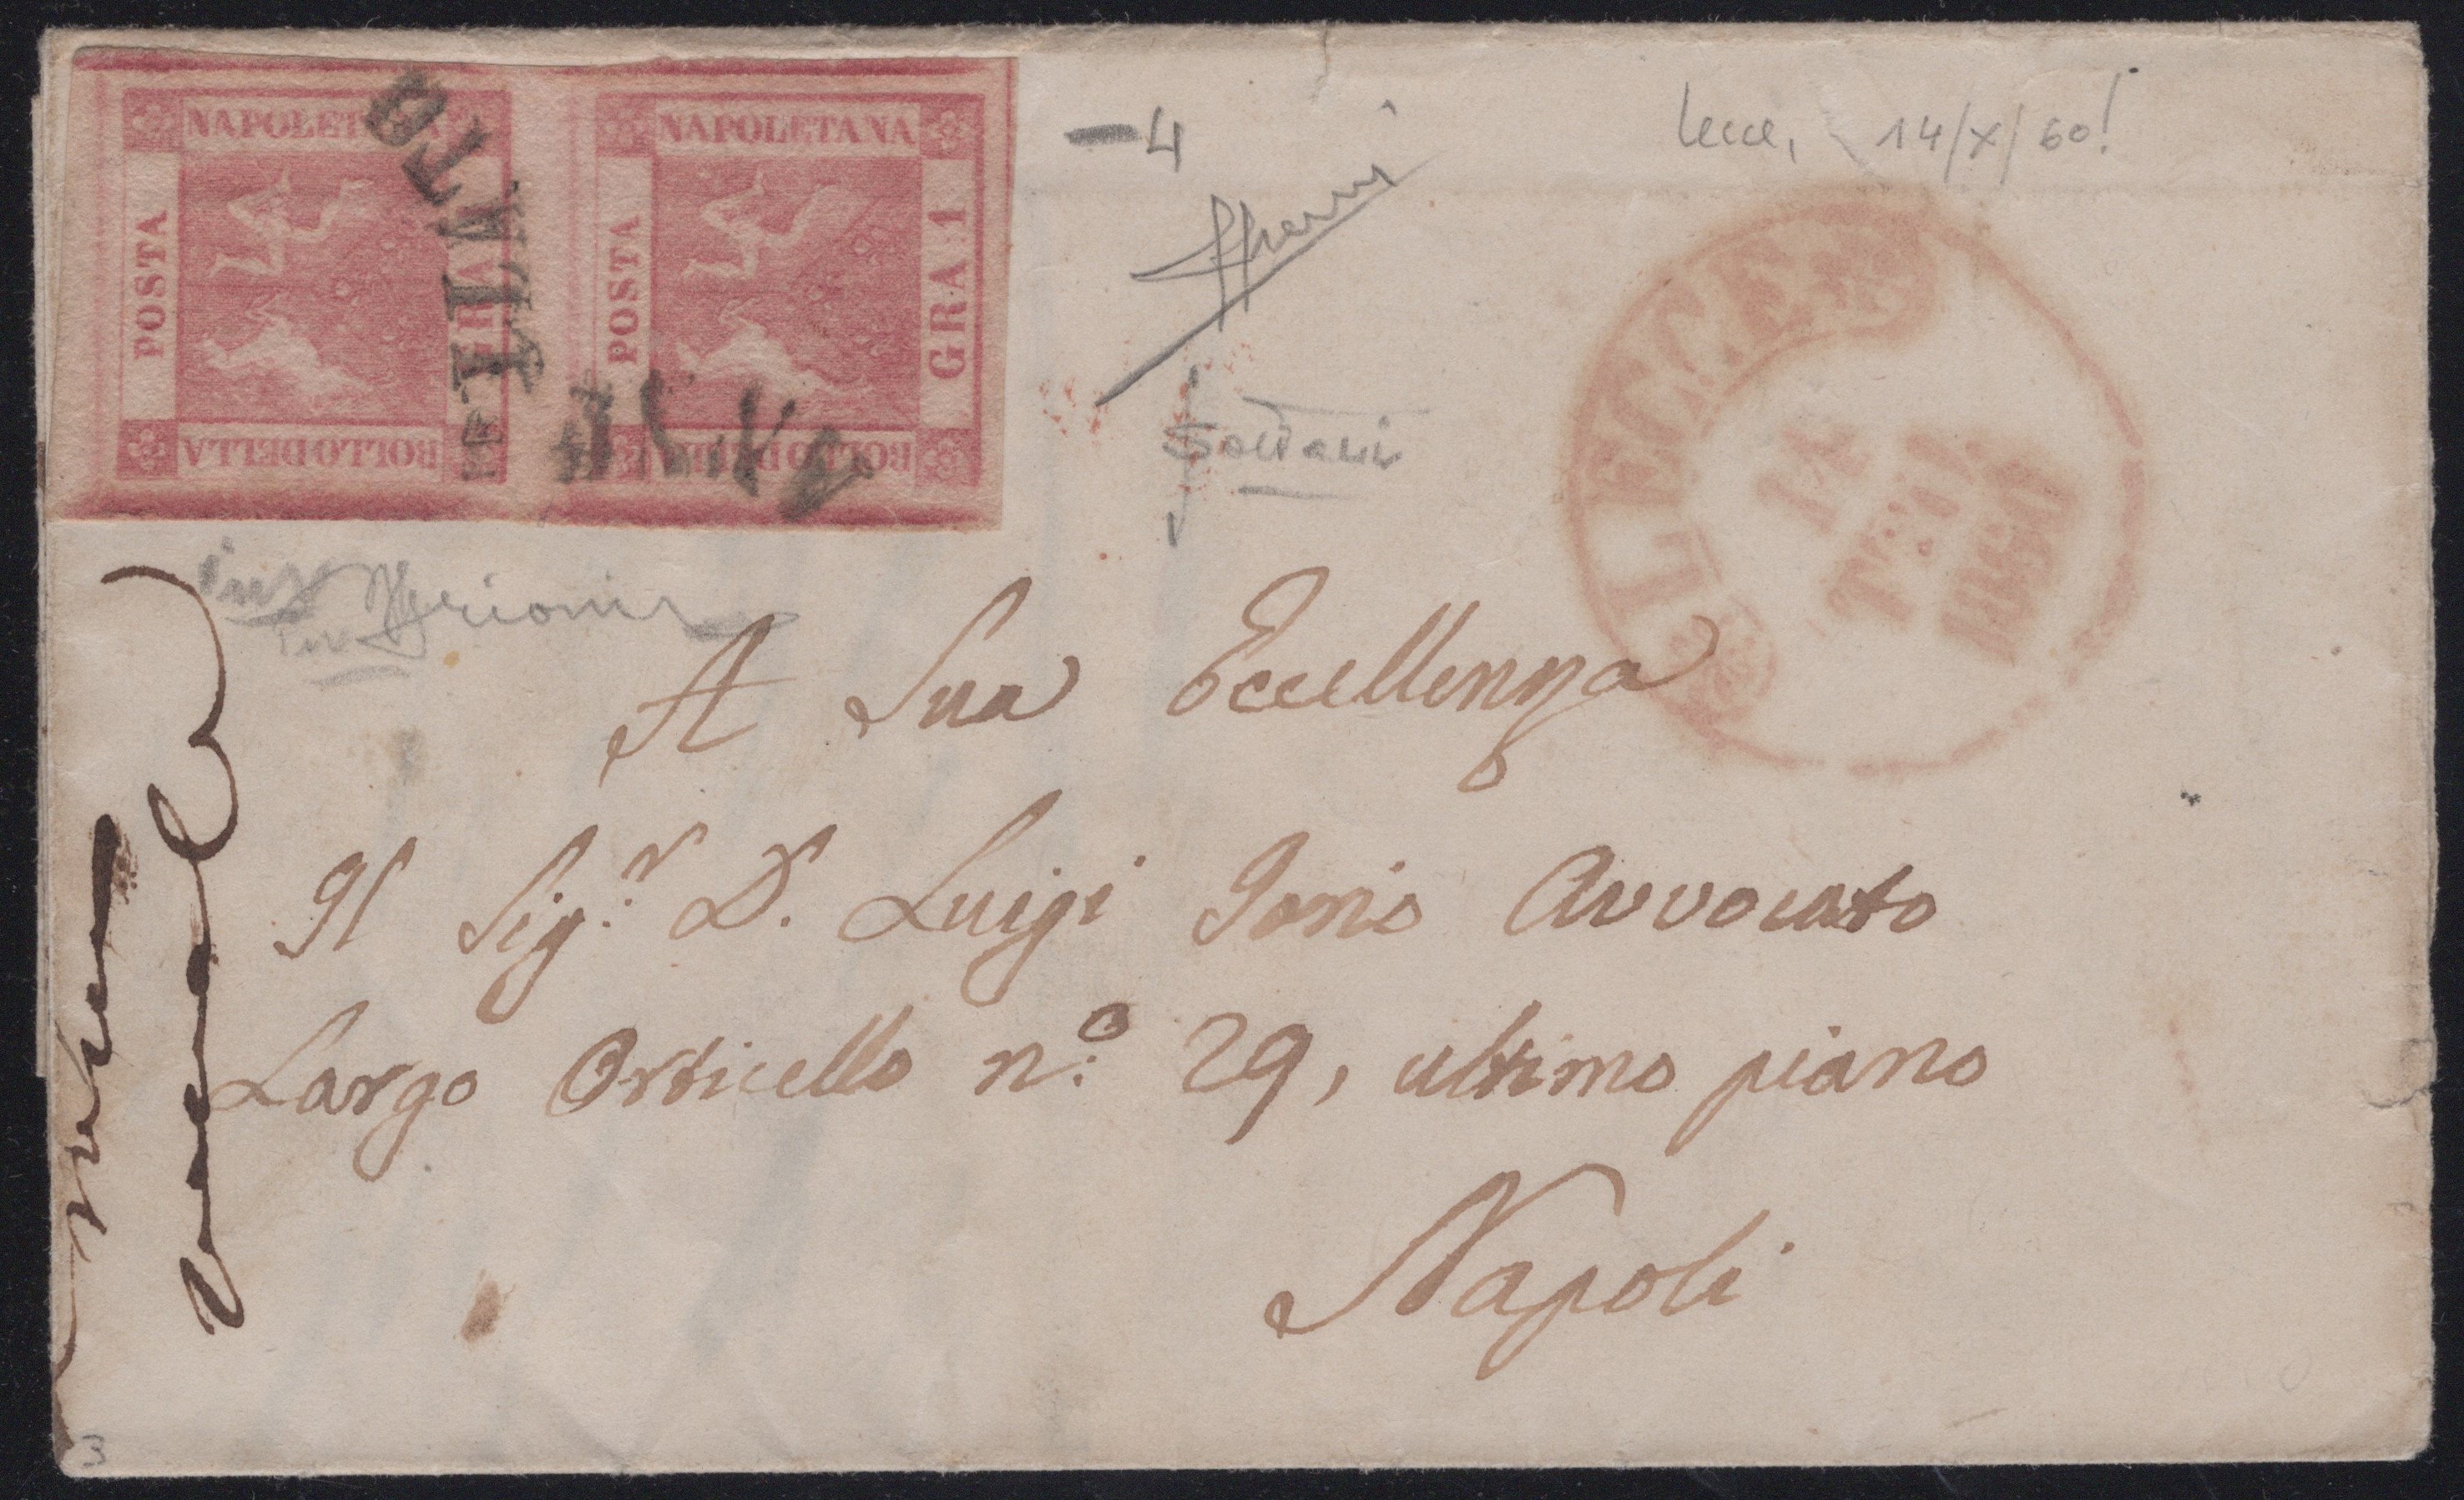 NAPOLETANA
POSTA
GRA
BOLLO DELLA
NAPOLETANA
POSTA
GRA 1
BOLLO DELLA
-4
Lecce, 14/X/60!
LECCE
14
1860
A Sua Eccellenza
Il Sig.r D. Luigi Avvocato
Largo Orticello n.o 29, ultimo piano
Napoli
3